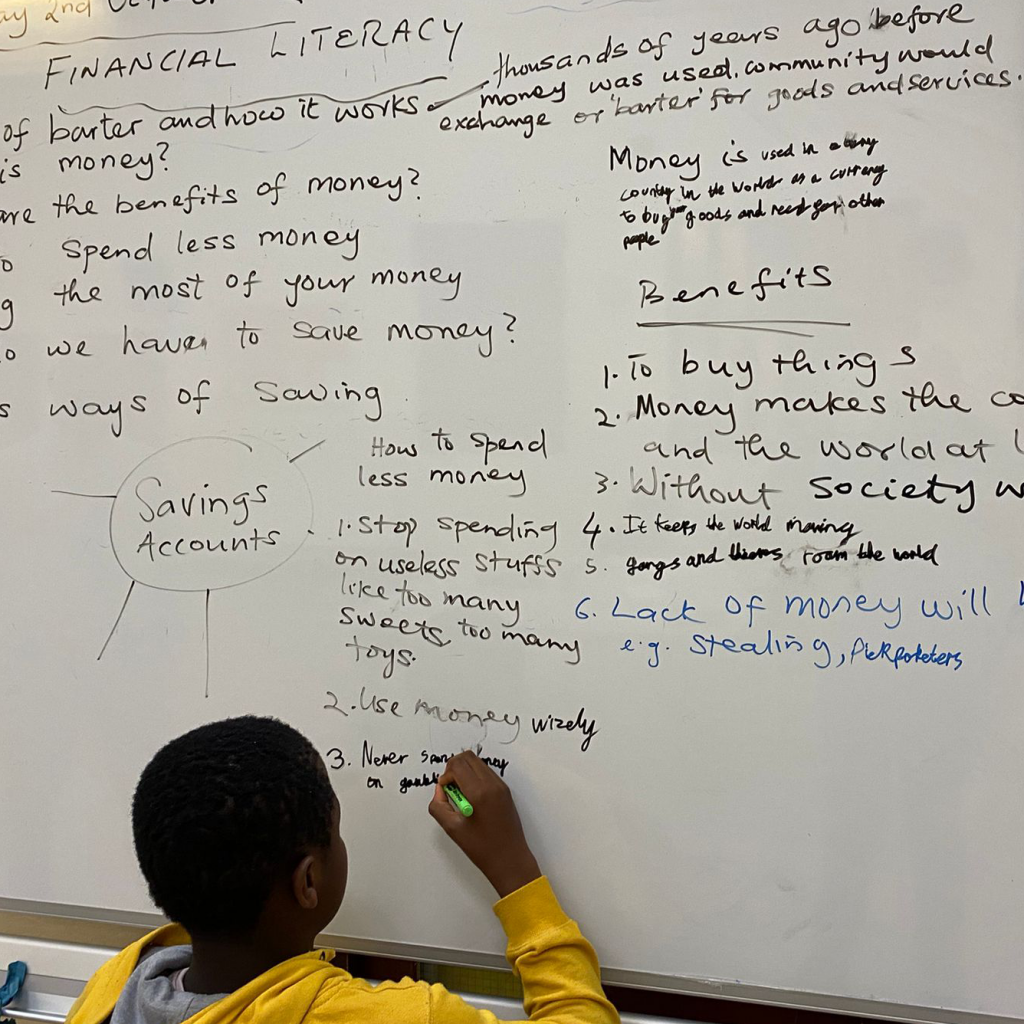 2nd
FINANCIAL LITERACY
thousands of years ago before
money was used, community would
exchange or 'barter' for goods and services.
of barter and how it works
is money?
are the benefits of money?
spend less money
g the most of your money
o we have to save money?
s ways of Saving
Savings
Accounts
How to spend
less money
1. Stop spending
on useless stuffs
like too many
sweets, too many
toys.
2. Use money wizely
3. Never money
on
Money is used in
country in the world as a currency
to buy goods and need for other
people
Benefits
1. To buy things
2. Money makes the co
and the world at l
3. Without Society w
4. It keeps the world moving
5. gangs and roam the world
6. Lack of money will
e.g. stealing, pickpoketers